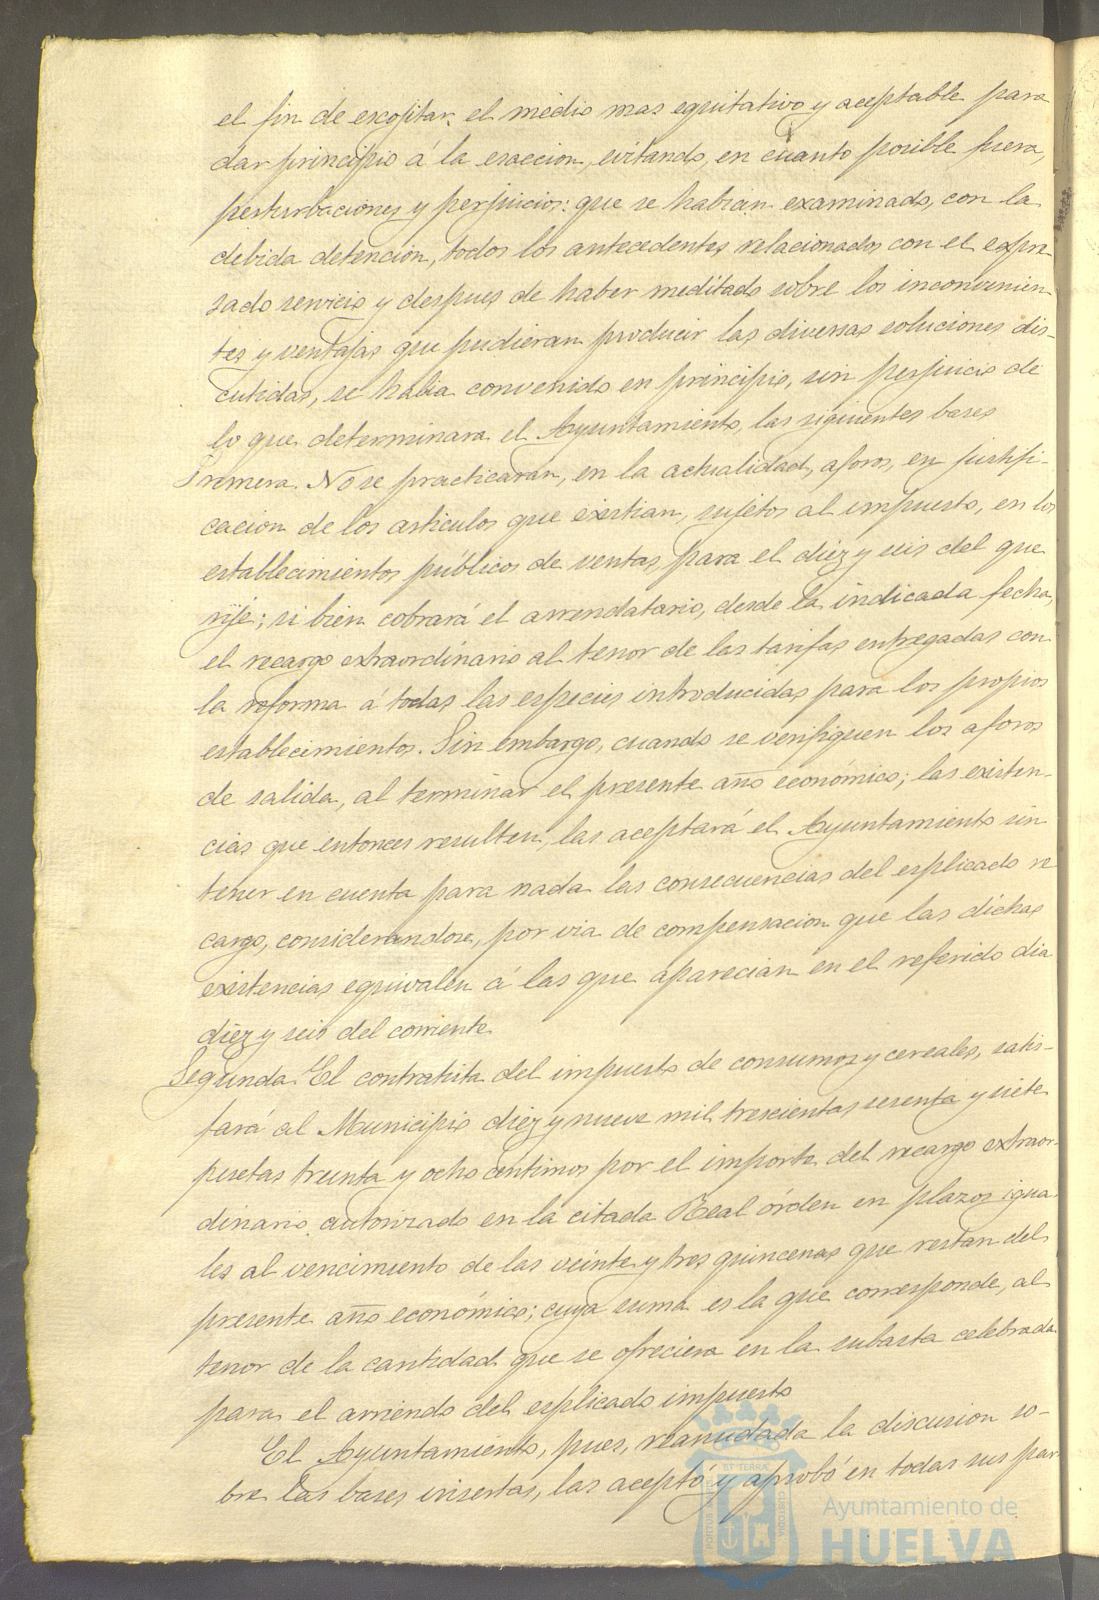 el fin de escojitar el medio mas equitativo y aceptable para
dar principio á la esaccion, evitando, en cuanto posible fuera,
perturbaciones y perjuicios: que se habian examinado, con la
debida detencion, todos los antecedentes relacionados con el expre-
sado servicio y despues de haber meditado sobre los inconvenien-
tes y ventajas que pudieran producir las diversas soluciones dis-
cutidas, se habia convenido en principio, sin perjuicio de
lo que determinara el Ayuntamiento, las siguientes bases
Primera. No se practicarán, en la actualidad, aforos, en justifi-
cacion de los articulos que existian, sujetos al impuesto, en los
establecimientos públicos de ventas para el diez y seis del que
rije; si bien cobrará el arrendatario, desde la indicada fecha,
el recargo extraordinario al tenor de las tarifas entregadas con
la reforma á todas las especies introducidas para los propios
establecimientos. Sin embargo, cuando se verifiquen los aforos
de salida, al terminar el presente año económico; las existen-
cias que entonces resulten, las aceptará el Ayuntamiento sin
tener en cuenta para nada las consecuencias del esplicado re
cargo, considerandose, por via de compensacion que las dichas
existencias equivalen á las que aparecian en el referido dia
diez y seis del corriente
Segunda. El contratista del impuesto de consumos y cereales, satis-
fará al Municipio diez y nueve mil trescientas sesenta y siete
pesetas treinta y ocho centimos por el importe del recargo extraor-
dinario autorizado en la citada Real órden en plazos igua-
les al vencimiento de las veinte y tres quincenas que restan del
presente año económico; cuya suma es la que corresponde, al
tenor de la cantidad que se ofreciera en la subasta celebrada
para el arriendo del esplicado impuesto
El Ayuntamiento, pues, reanudada la discusion so-
bre las bases insertas, las aceptó y aprobó en todas sus par
Ayuntamiento de
HUELVA